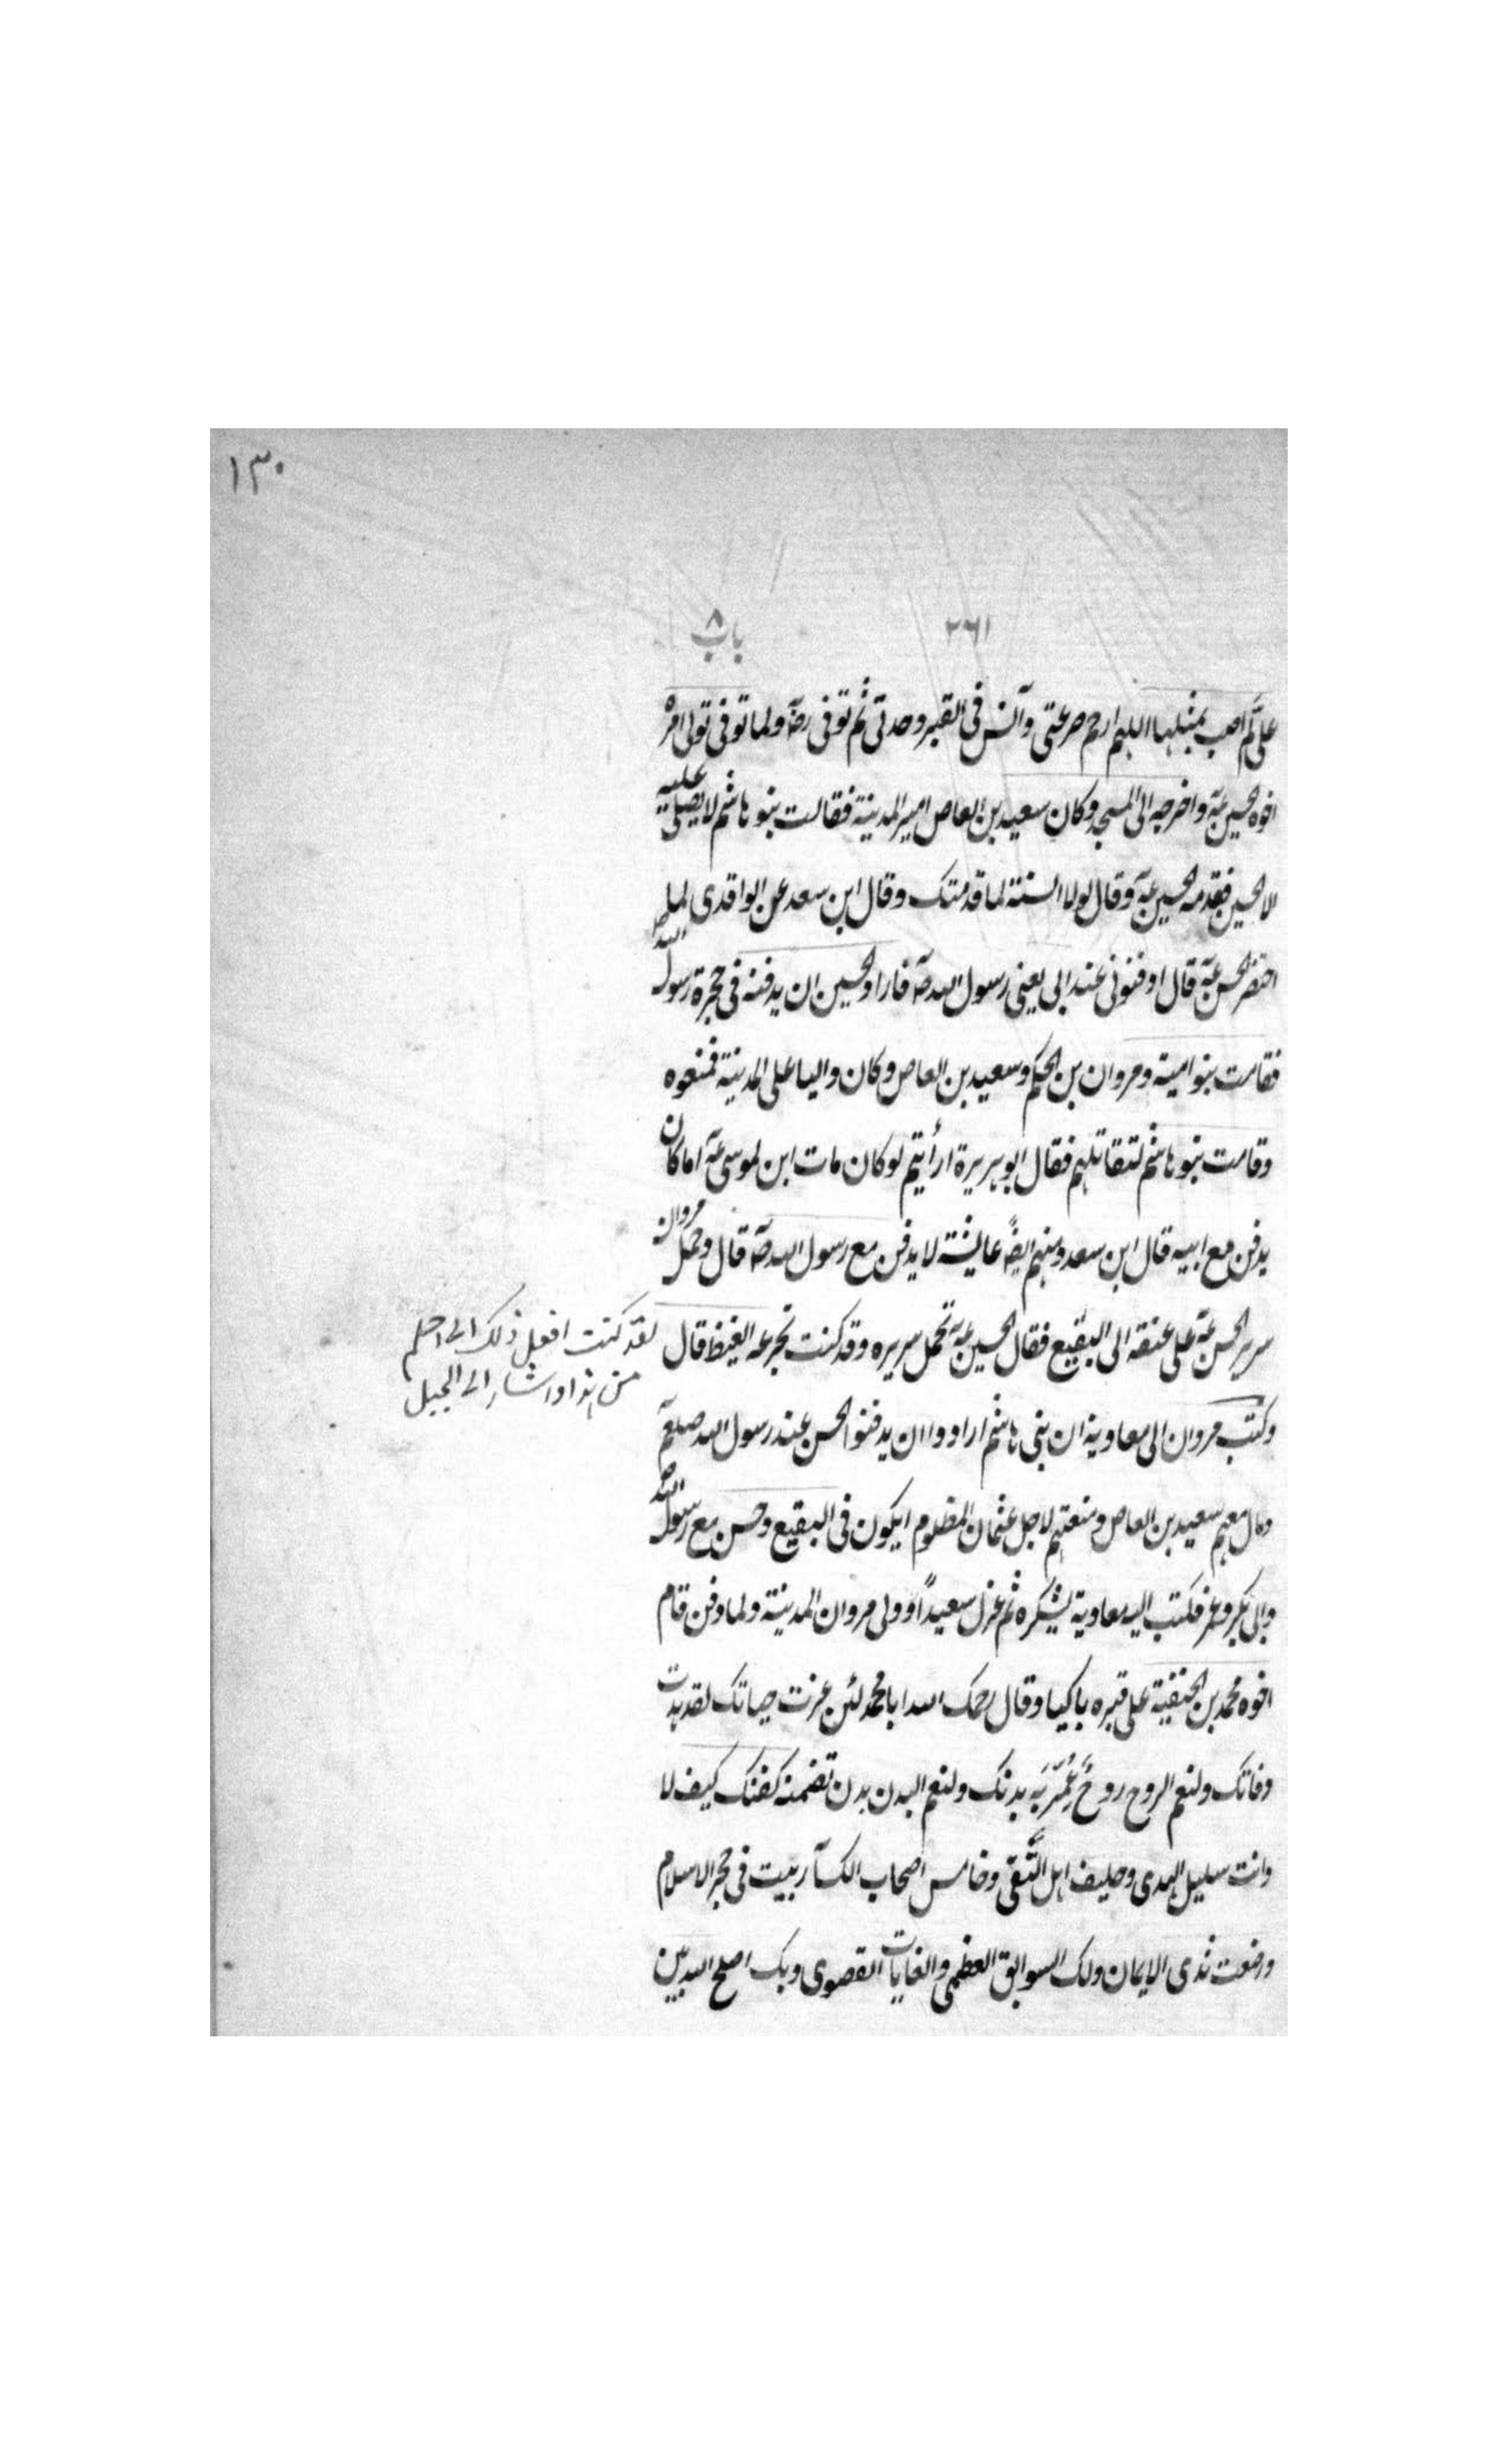 ١٣٠
٢٦١ باب ٨
علىّ لم اصب بمثلها اللهم ارحم صرعتى وآنس فى القبر وحدتى ثم توفى رضه ولما توفى تولى امره
اخوه الحسين عه واخرجه الى المسجد وكان سعيد بن العاص امير المدينة فقالت بنو هاشم لا يصلى عليه
الا الحسين فقدمه الحسين عه وقال لولا السنة لما قدمتك وقال ابن سعد عن الواقدى لما
احتضر الحسن عه قال ادفنونى عند ابى يعنى رسول الله صه فاراد الحسين ان يدفنه فى حجرة رسول الله ص
فقامت بنو امية ومروان بن الحكم وسعيد بن العاص وكان واليا على المدينة فمنعوه
وقامت بنو هاشم لتقاتلهم فقال ابو هريرة ارأيتم لو كان مات ابن لموسى عه اما كان
يدفن مع ابيه قال ابن سعد ومنهم ايضاً عائشة لا يدفن مع رسول الله صه قال وحمل مروان
سرير الحسن عه على عنقه الى البقيع فقال الحسين عه تحمل سريره وقد كنت تجرعه الغيظ قال
لقد كنت افعل ذلك الى احلم
من هذا واشار الى الجبل
وكتب مروان الى معاوية ان بنى هاشم ارادوا ان يدفنوا الحسن عند رسول الله صلعم
ومال معهم سعيد بن العاص ومنعتهم لاجل عثمان المظلوم ايكون فى البقيع وحسن مع رسول الله ص
وابى بكر وعمر فكتب اليه معاوية يشكره ثم عزل سعيداً وولى مروان المدينة ولما دفن قام
اخوه محمد بن الحنفية على قبره باكيا وقال رحمك الله ابا محمد لئن عزت حياتك لقد هدت
وفاتك ولنعم الروح روحٌ عُمّر به بدنك ولنعم البدن بدن تضمنه كفنك كيف لا
وانت سليل الهدى وحليف اهل التُّقى وخامس اصحاب الكسآ ربيت فى حجر الاسلام
ورضعت ثدى الايمان ولك السوابق العظمى والغايات القصوى وبك اصلح الله بين